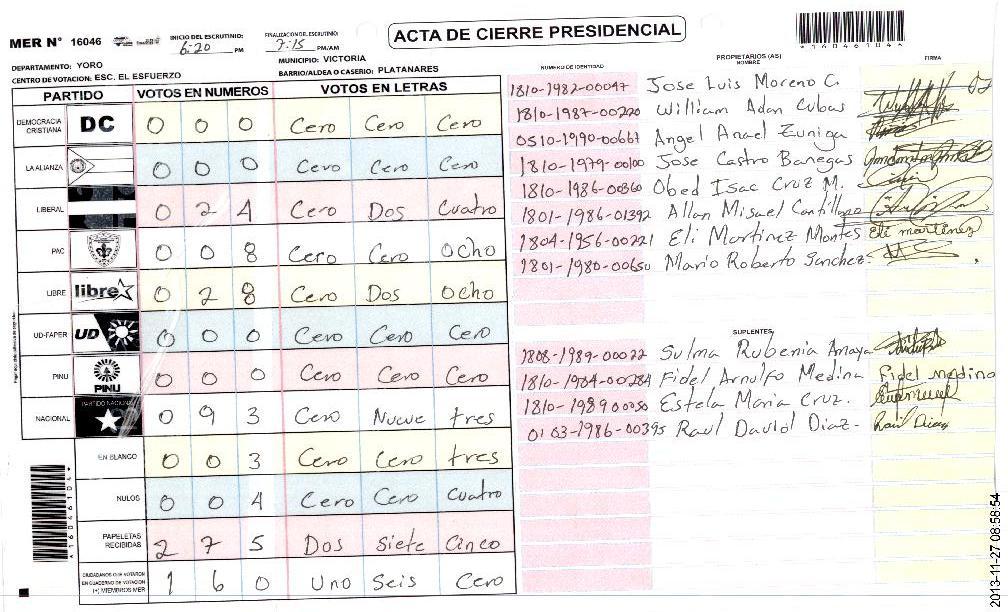 MER N° 16046 INICIO DEL ESCRUTINIO: 6:20 PM FINALIZACION DEL ESCRUTINIO: 7:15 PM/AM
ACTA DE CIERRE PRESIDENCIAL
*16046104*
DEPARTAMENTO: YORO MUNICIPIO: VICTORIA
CENTRO DE VOTACION: ESC. EL ESFUERZO BARRIO/ALDEA O CASERIO: PLATANARES
PARTIDO VOTOS EN NUMEROS VOTOS EN LETRAS
DEMOCRACIA CRISTIANA DC 0 0 0 Cero Cero Cero
LA ALIANZA 0 0 0 Cero Cero Cero
LIBERAL 0 2 4 Cero Dos Cuatro
PAC 0 0 8 Cero Cero Ocho
LIBRE libre 0 2 8 Cero Dos Ocho
UD-FAPER UD 0 0 0 Cero Cero Cero
PINU PINU 0 0 0 Cero Cero Cero
NACIONAL PARTIDO NACIONAL 0 9 3 Cero Nueve tres
EN BLANCO 0 0 3 Cero Cero tres
NULOS 0 0 4 Cero Cero Cuatro
PAPELETAS RECIBIDAS 2 7 5 Dos Siete Cinco
CIUDADANOS QUE VOTARON EN CUADERNO DE VOTACION (+) MIEMBROS MER 1 6 0 Uno Seis Cero
PROPIETARIOS (AS)
NUMERO DE IDENTIDAD NOMBRE FIRMA
1810-1982-00047 Jose Luis Moreno C.
1810-1987-00220 William Adan Cubas
0510-1990-00667 Angel Anael Zuniga
1810-1979-00100 Jose Castro Banegas
1810-1986-00360 Obed Isac Cruz M.
1801-1986-01392 Allan Misael Cantillano
1804-1956-00221 Eli Martinez Montes Eli martinez
1801-1980-00650 Mario Roberto Sanchez.
SUPLENTES
1808-1989-00022 Sulma Rubenia Amaya
1810-1984-00284 Fidel Arnulfo Medina Fidel medina
1810-1989 00050 Estela Maria Cruz.
0103-1986-00395 Raul David Diaz. Raul Diaz
2013-11-27 08:58:54